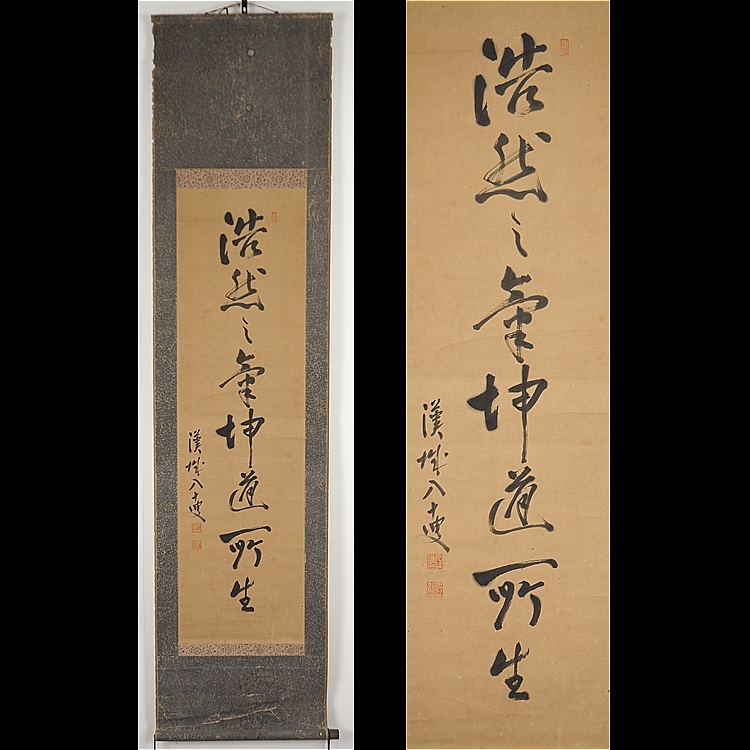 浩然之氣坤道所生
漢城八十叟
浩然之氣坤道所生
漢城八十叟